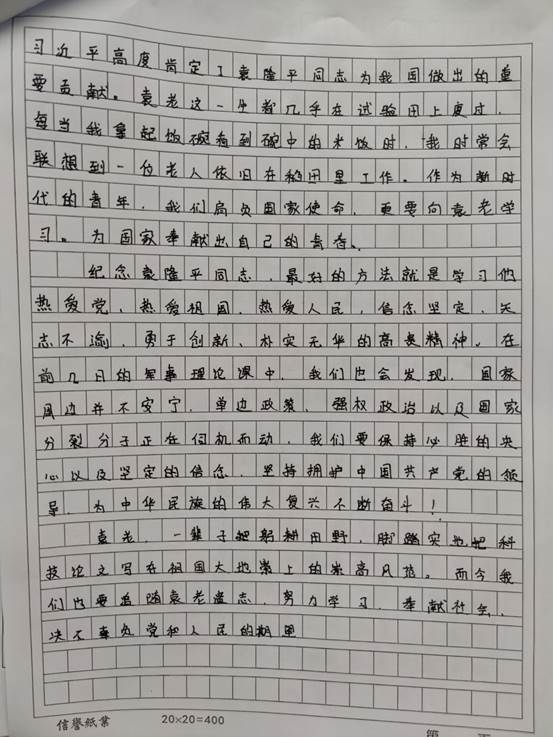 习近平高度肯定了袁隆平同志为我国做出的重
要贡献。袁老这一生都几乎在试验田上度过,
每当我拿起饭碗看到碗中的米饭时,我时常会
联想到一位老人依旧在稻田里工作。作为新时
代的青年,我们肩负国家使命,更要向袁老学
习。为国家奉献出自己的青春。
纪念袁隆平同志,最好的方法就是学习他
热爱党、热爱祖国、热爱人民,信念坚定、矢
志不渝,勇于创新、朴实无华的高贵精神。在
前几日的军事理论课中,我们也会发现,国家
周边并不安宁,单边政策,强权政治以及国家
分裂分子正在伺机而动,我们要保持必胜的决
心以及坚定的信念,坚持拥护中国共产党的领
导,为中华民族的伟大复兴不断奋斗!
袁老,一辈子把躬耕田野,脚踏实地把科
技论文写在祖国大地上的崇高风范。而今我
们也要追随袁老遗志,努力学习,奉献社会,
决不辜负党和人民的期望
信誉紙業 20×20=400 第 页